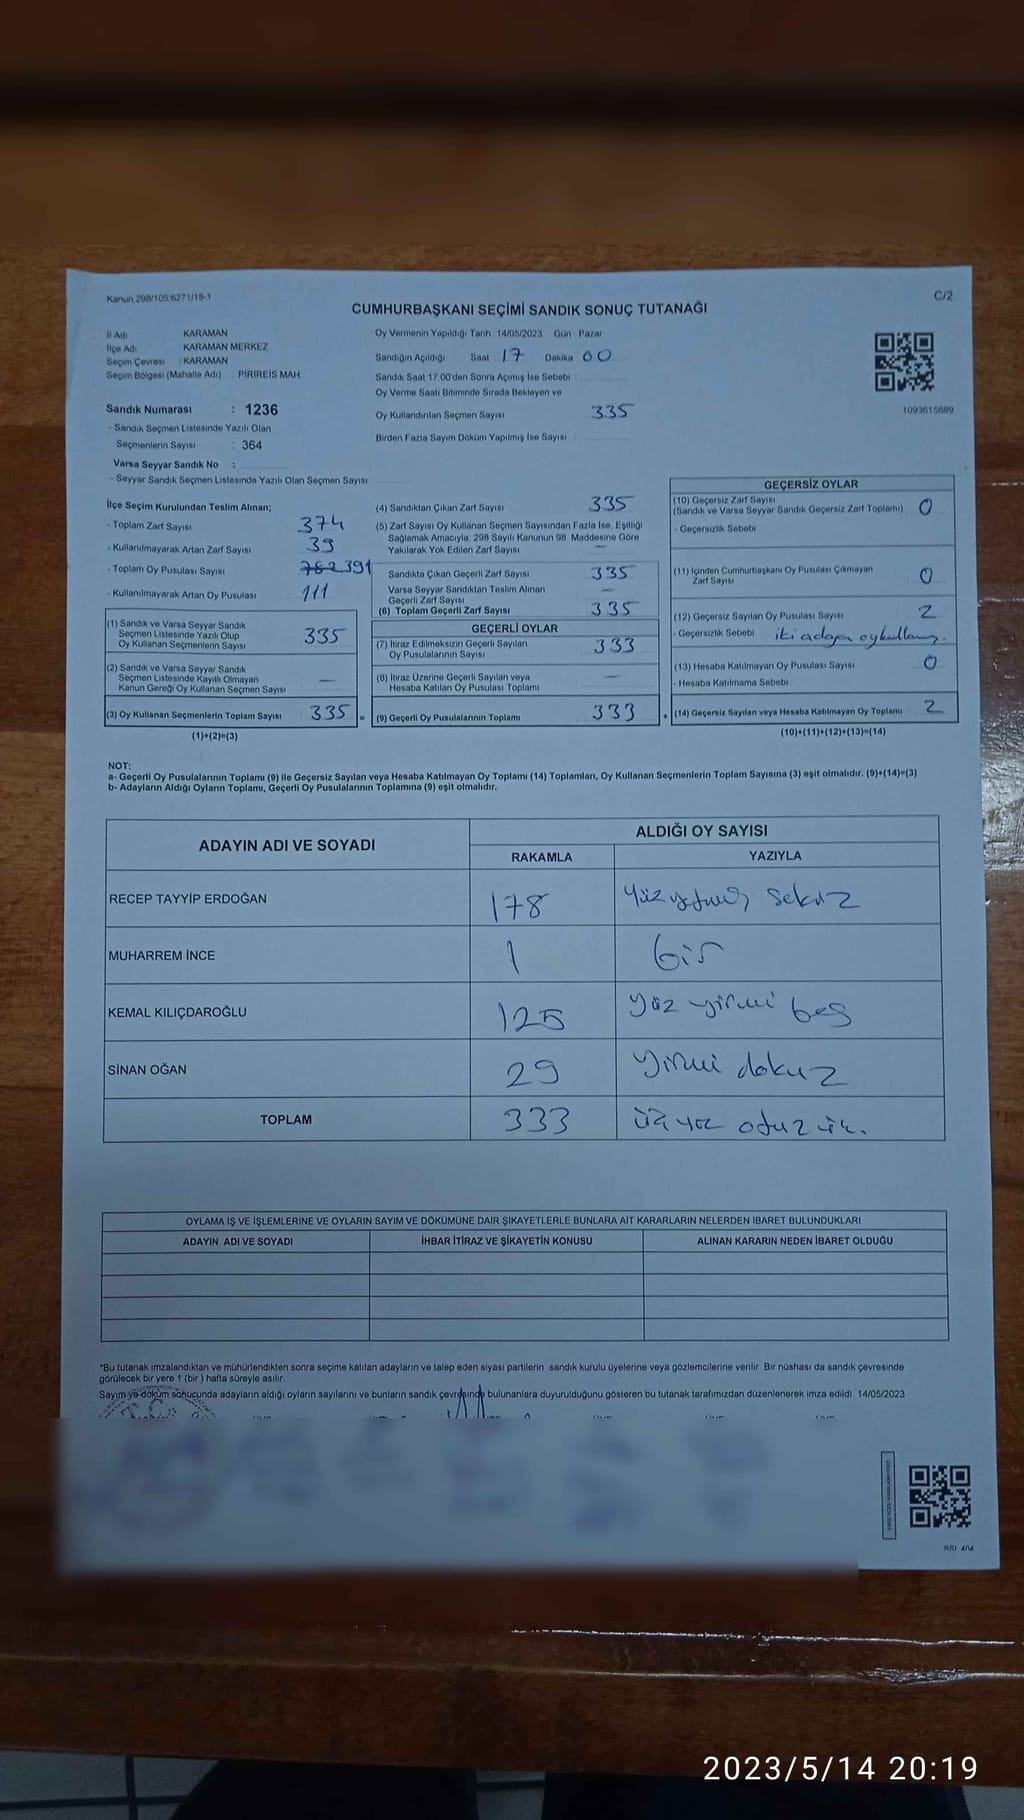 Kanun 298/105 6271/18-1
C/2
CUMHURBAŞKANI SEÇİMİ SANDIK SONUÇ TUTANAĞI
İl Adı KARAMAN
İlçe Adı KARAMAN MERKEZ
Seçim Çevresi : KARAMAN
Seçim Bölgesi (Mahalle Adı) : PİRİREİS MAH.
Sandık Numarası : 1236
- Sandık Seçmen Listesinde Yazılı Olan
Seçmenlerin Sayısı : 364
Varsa Seyyar Sandık No :
- Seyyar Sandık Seçmen Listesinde Yazılı Olan Seçmen Sayısı
Oy Vermenin Yapıldığı Tarih : 14/05/2023 Gün : Pazar
Sandığın Açıldığı Saat 17 Dakika 00
Sandık Saat 17.00'den Sonra Açımış İse Sebebi
Oy Verme Saati Bitiminde Sırada Bekleyen ve
Oy Kullandırılan Seçmen Sayısı 335
Birden Fazla Sayım Döküm Yapılmış İse Sayısı
1093615889
İlçe Seçim Kurulundan Teslim Alınan;
- Toplam Zarf Sayısı 374
- Kullanılmayarak Artan Zarf Sayısı 39
- Toplam Oy Pusulası Sayısı 391
- Kullanılmayarak Artan Oy Pusulası 111
(1) Sandık ve Varsa Seyyar Sandık
Seçmen Listesinde Yazılı Olup
Oy Kullanan Seçmenlerin Sayısı 335
(2) Sandık ve Varsa Seyyar Sandık
Seçmen Listesinde Kayıtlı Olmayan
Kanun Gereği Oy Kullanan Seçmen Sayısı —
(3) Oy Kullanan Seçmenlerin Toplam Sayısı 335 =
(1)+(2)=(3)
(4) Sandıktan Çıkan Zarf Sayısı 335
(5) Zarf Sayısı Oy Kullanan Seçmen Sayısından Fazla İse, Eşitliği
Sağlamak Amacıyla, 298 Sayılı Kanunun 98. Maddesine Göre
Yakılarak Yok Edilen Zarf Sayısı —
Sandıkta Çıkan Geçerli Zarf Sayısı 335
Varsa Seyyar Sandıktan Teslim Alınan
Geçerli Zarf Sayısı —
(6) Toplam Geçerli Zarf Sayısı 335
GEÇERLİ OYLAR
(7) İtiraz Edilmeksizin Geçerli Sayılan
Oy Pusulalarının Sayısı 333
(8) İtiraz Üzerine Geçerli Sayılan veya
Hesaba Katılan Oy Pusulası Toplamı —
(9) Geçerli Oy Pusulalarının Toplamı 333 +
GEÇERSİZ OYLAR
(10) Geçersiz Zarf Sayısı
(Sandık ve Varsa Seyyar Sandık Geçersiz Zarf Toplamı) 0
- Geçersizlik Sebebi
(11) İçinden Cumhurbaşkanı Oy Pusulası Çıkmayan
Zarf Sayısı 0
(12) Geçersiz Sayılan Oy Pusulası Sayısı 2
- Geçersizlik Sebebi iki adaya
(13) Hesaba Katılmayan Oy Pusulası Sayısı 0
- Hesaba Katılmama Sebebi
(14) Geçersiz Sayılan veya Hesaba Katılmayan Oy Toplamı 2
(10)+(11)+(12)+(13)=(14)
NOT:
a- Geçerli Oy Pusulalarının Toplamı (9) ile Geçersiz Sayılan veya Hesaba Katılmayan Oy Toplamı (14) Toplamları, Oy Kullanan Seçmenlerin Toplam Sayısına (3) eşit olmalıdır. (9)+(14)=(3)
b- Adayların Aldığı Oyların Toplamı, Geçerli Oy Pusulalarının Toplamına (9) eşit olmalıdır.
ADAYIN ADI VE SOYADI
ALDIĞI OY SAYISI
RAKAMLA YAZIYLA
RECEP TAYYİP ERDOĞAN 178 yüz yetmiş sekiz
MUHARREM İNCE 1 bir
KEMAL KILIÇDAROĞLU 125 yüz yirmi beş
SİNAN OĞAN 29 yirmi dokuz
TOPLAM 333 üç yüz otuz üç.
OYLAMA İŞ VE İŞLEMLERİNE VE OYLARIN SAYIM VE DÖKÜMÜNE DAİR ŞİKAYETLERLE BUNLARA AİT KARARLARIN NELERDEN İBARET BULUNDUKLARI
ADAYIN ADI VE SOYADI İHBAR İTİRAZ VE ŞİKAYETİN KONUSU ALINAN KARARIN NEDEN İBARET OLDUĞU
*Bu tutanak imzalandıktan ve mühürlendikten sonra seçime katılan adayların ve talep eden siyasi partilerin sandık kurulu üyelerine veya gözlemcilerine verilir. Bir nüshası da sandık çevresinde
görülecek bir yere 1 (bir ) hafta süreyle asılır.
Sayım ve döküm sonucunda adayların aldığı oyların sayılarını ve bunların sandık çevresinde bulunanlara duyurulduğunu gösteren bu tutanak tarafımızdan düzenlenerek imza edildi 14/05/2023
2023/5/14 20:19